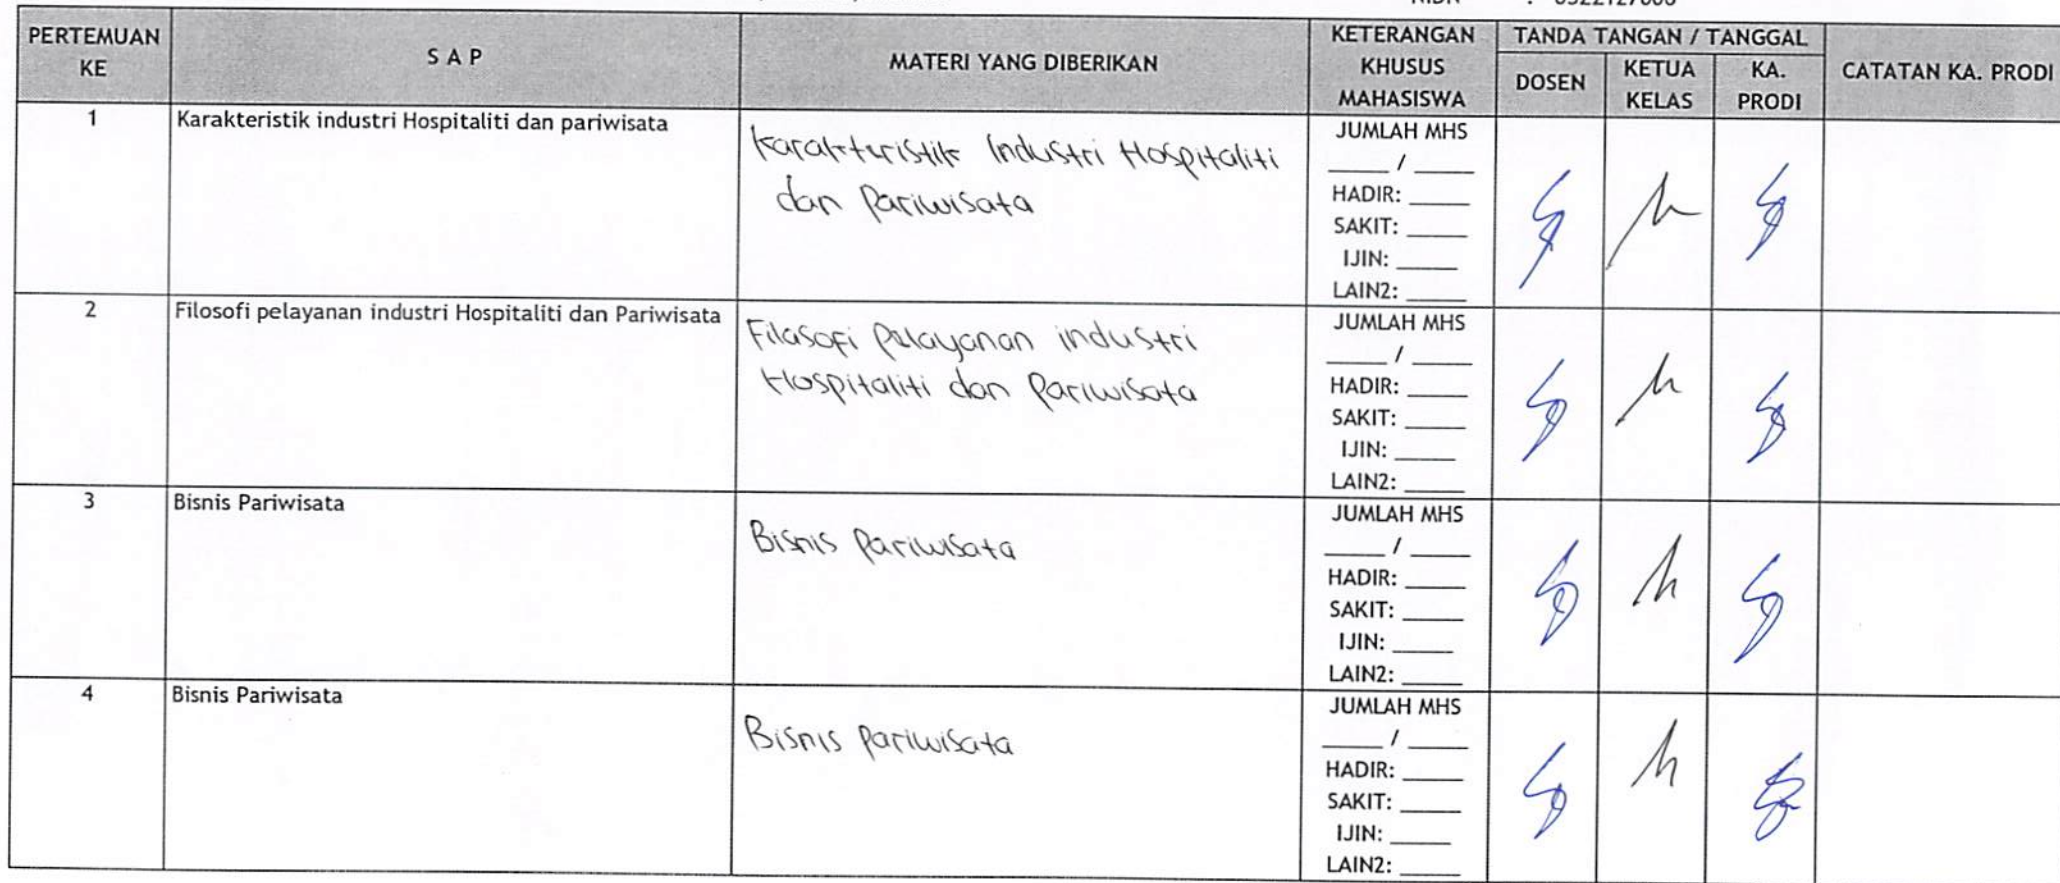 PERTEMUAN KE
S A P
MATERI YANG DIBERIKAN
KETERANGAN KHUSUS MAHASISWA
TANDA TANGAN / TANGGAL
DOSEN
KETUA KELAS
KA. PRODI
CATATAN KA. PRODI
1
Karakteristik industri Hospitaliti dan pariwisata
Karakteristik Industri Hospitaliti
dan Pariwisata
JUMLAH MHS
____ / ____
HADIR: ____
SAKIT: ____
IJIN: ____
LAIN2: ____
2
Filosofi pelayanan industri Hospitaliti dan Pariwisata
Filasofi Pelayanan industri
Hospitaliti dan Pariwisata
JUMLAH MHS
____ / ____
HADIR: ____
SAKIT: ____
IJIN: ____
LAIN2: ____
3
Bisnis Pariwisata
Bisnis Pariwisata
JUMLAH MHS
____ / ____
HADIR: ____
SAKIT: ____
IJIN: ____
LAIN2: ____
4
Bisnis Pariwisata
Bisnis Pariwisata
JUMLAH MHS
____ / ____
HADIR: ____
SAKIT: ____
IJIN: ____
LAIN2: ____